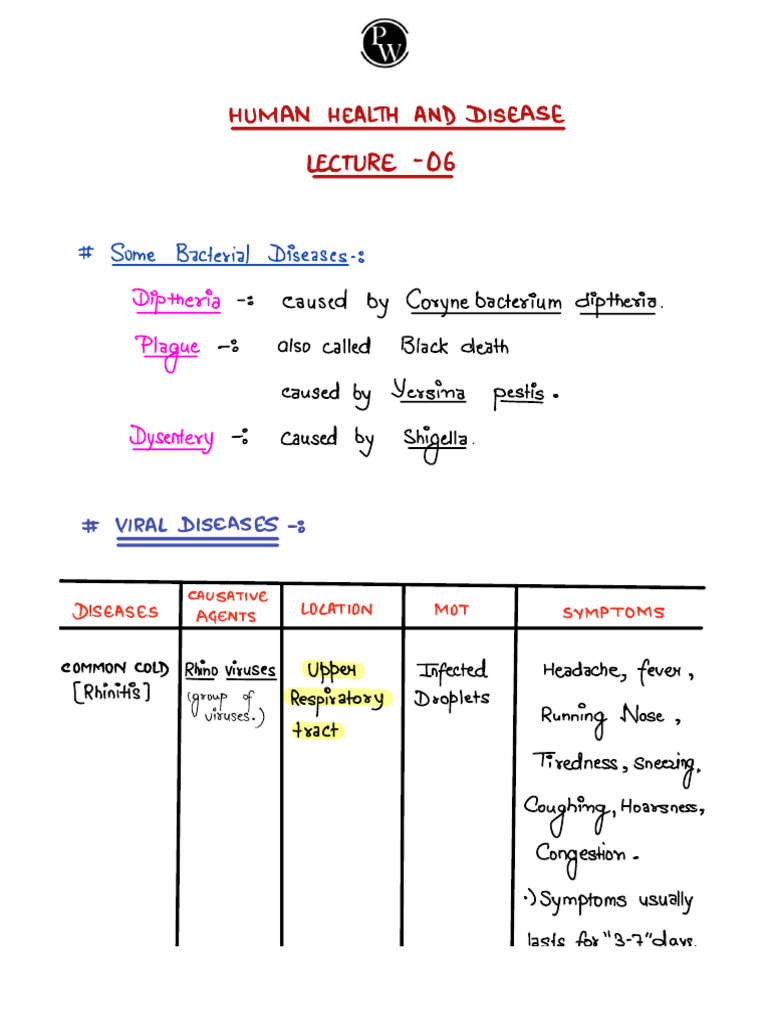 PW
HUMAN HEALTH AND DISEASE
LECTURE -06
# Some Bacterial Diseases-:
Diptheria -: caused by Corynebacterium diptheria.
Plague -: also called Black death
caused by Yersina pestis.
Dysentery -: Caused by Shigella.
# VIRAL DISEASES -:
DISEASES CAUSATIVE AGENTS LOCATION MOT SYMPTOMS
COMMON COLD Rhino viruses Upper Infected Headache, fever,
[Rhinitis] (group of Respiratory Droplets Running Nose,
viruses.) tract
Tiredness, Sneezing,
Coughing, Hoarsness,
Congestion.
·) Symptoms usually
lasts for "3-7" days.